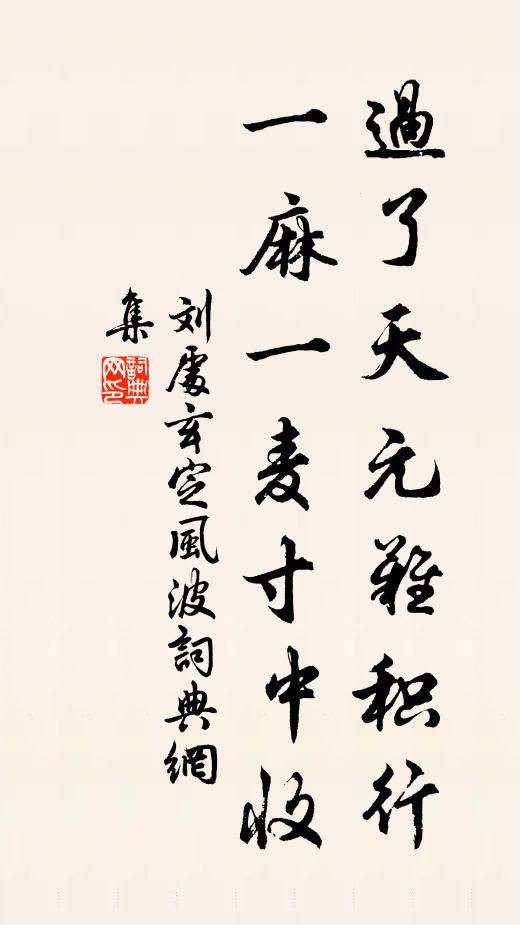 過了天元難积行
一麻一麦寸中收
刘處玄定風波詞典網
集
詞典
网印